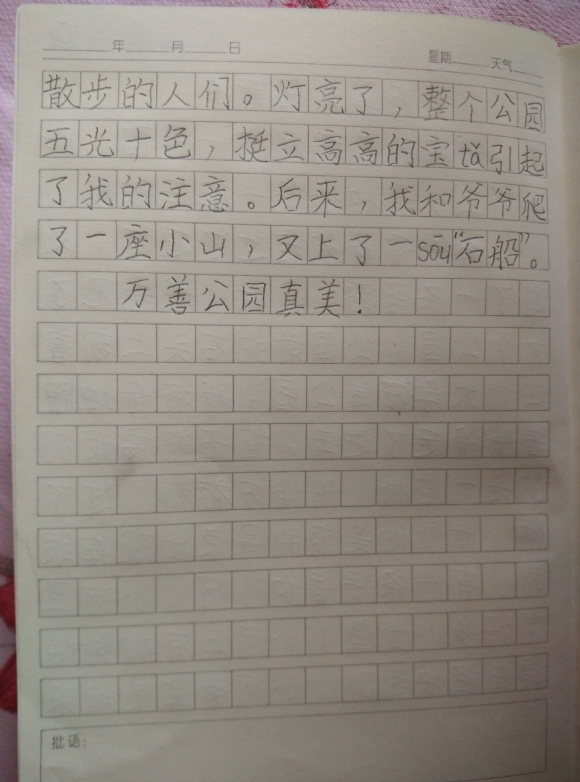 年 月 日 星期 天气
散步的人们。灯亮了，整个公园
五光十色，挺立高高的宝tǎ引起
了我的注意。后来，我和爷爷爬
了一座小山，又上了一sōu“石船”。
万善公园真美！
批语：